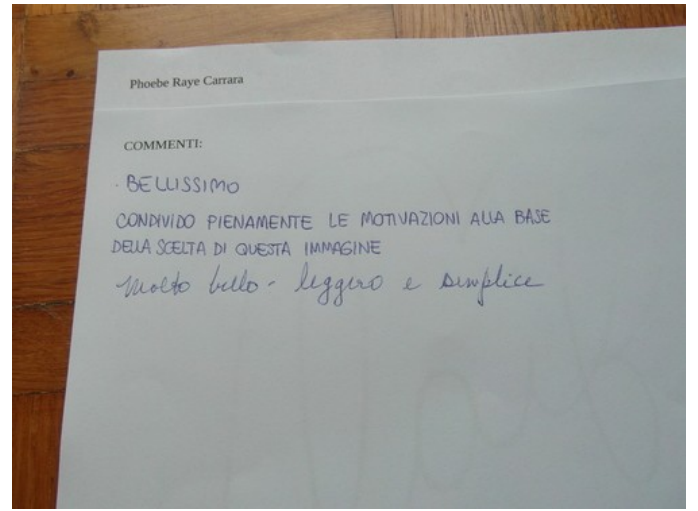 Phoebe Raye Carrara
COMMENTI:
· BELLISSIMO
CONDIVIDO PIENAMENTE LE MOTIVAZIONI ALLA BASE
DELLA SCELTA DI QUESTA IMMAGINE
Molto bello - leggero e semplice